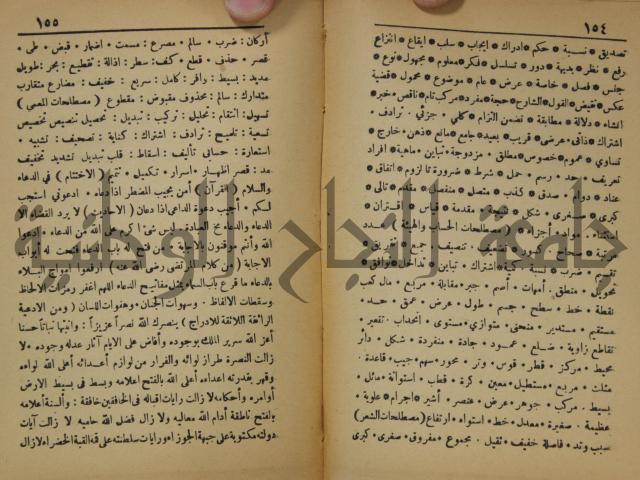 ١٥٤
تصديق * نسبة * حكم * ادراك * ايجاب * سلب * ايقاع * انتزاع
رفع * نظر * بديهة * دور * تسلسل * فكر * معلوم * مجهول * نوع *
جنس * فصل * خاصة * عرض * عام * موضوع * محمول * قضية
عكس * نقيض * القول * الشارح * حجة * مفرد * مركب تام * ناقص * خبر *
انشاء * دلالة * مطابقة * تضمن التزام * كلي * جزئي * ترادف *
اشتراك * ذاتى * عرضى * قريب * بعيد * جامع * مانع * ذهن * خارج
تساوي * عموم * خصوص * مطلق * مزدوجة * تباين * ماهية * افراد
تعريف * حد * رسم * حمل * شرط * ضرورة * لزوم * اتفاق *
عناد * دوام * صدق * كذب * متصل * منفصل * مقدم * تالى *
كبرى * صغرى * شكل * نتيجة * مقدمة * قياس * اقتران *
استثناء * مواد * اجزاء * ( مصطلحات الحساب والهيئة ) عدد
مرتبة * صحاح * كسور * تضعيف * تنصيف * جمع * تفريق *
تقسيم * ضرب * نسبة * كمية * اشتراك * تباين * تداخل * توافق *
تحويل * منطق * أمهات * أصم * جبر * مقابلة * مربع * مال كعب
نقطة * خط * سطح * جسم * طول * عرض * عمق * حد *
مستقيم * مستدير * منحنى * متوازي * مستوى * انحداب * تقعير *
تقاطع زاوية * ضلع * عمود * جادة * منفرجة * شكل * دائر
محيط * مركز * قطر * قوس * وتر * محور * سهم * جيب * قاعدة *
مثلث * مربع * مستطيل * معين * كرة * قطب * استوانة * مائل *
بسيط * مركب * جوهر * عرض * عنصر * أثير * اجرام * علوية *
عظيمة * صغيرة * معدل * خط * استواء * ارتفاع ( مصطلحات الشعر )
سبب وتد * فاصلة خفيف * ثقيل * مجموع * مفروق * صغرى * كبرى
١٥٥
أركان : ضرب * سالم * مصرع : مسمت * اضمار * قبض * طى *
قصر * حذف * قطع * كف : سطر : اذالة : تقطيع : بحر : طويل
مديد : بسيط : وافر : كامل : سريع : خفيف : مضارع متقارب
متدارك : سالم : محذوف مقبوض : مقطوع ( مصطلحات المعمى )
تسهيل : انتقام : تحليل : تركيب : تبديل : تحصيل تنصيص تخصيص
تسمية : تلميح : ترادف : اشتراك : كناية : تصحيف : تشبيه *
استعارة : حسابى تأليف : اسقاط : قلب تبديل تشديد تخفيف
مد : قصر اظهار : اسرار * تكميل * تتميم ( الاختتام ) في الدعاء
والسلام ( القرآن ) أمن يجيب المضطر اذا دعاه * ادعوني استجب
لكم * أجيب دعوة الداعي اذا دعان ( الاحاديث ) لا يرد القضاء الا
الدعاء والدعاء مخ العبادة * ليس شئ اكرم على الله من الدعاء * ادعوا
الله وأنتم موقنون بالاجابة * من فتح له باب الدعاء فتحت له أبواب
الاجابة ( من كلام المرتضى رضى الله عنه ) ارفعوا امواج البلاء
بالدعاء ما قرع باب السماء بمثل مفاتيح الدعاء اللهم اغفر رمزات الالحاظ
وسقطات الالفاظ * وسهوات الجنان * وهفوات اللسان ( ومن الادعية
الرائقة اللائقة للادراج ) ينصرك الله نصراً عزيزاً : وانبتها نباتاً حسنا
أعز الله سرير الملك بوجوده وأفاض على الايام آثار عدله وجوده * لا
زالت النصرة طراز لوائه والفرار من لوازم أعدائه أعلى الله لواءه
وقهر بقدرته اعداءه أعلى الله بالفتح اعلامه وبسط في بسيط الارض
أوامره وأحكامه لا زالت رايات اقباله فى الخافقين خافقة : والسنة أعلامه
بالفتح ناطقة أدام الله معاليه ولا زال فضل الله حاميه لا زالت آيات
دولته مكتوبة على جبهة الجوزاء ورايات سلطنته على قمة القبة الخضراء لا زال
جامعة النجاح الوطنية